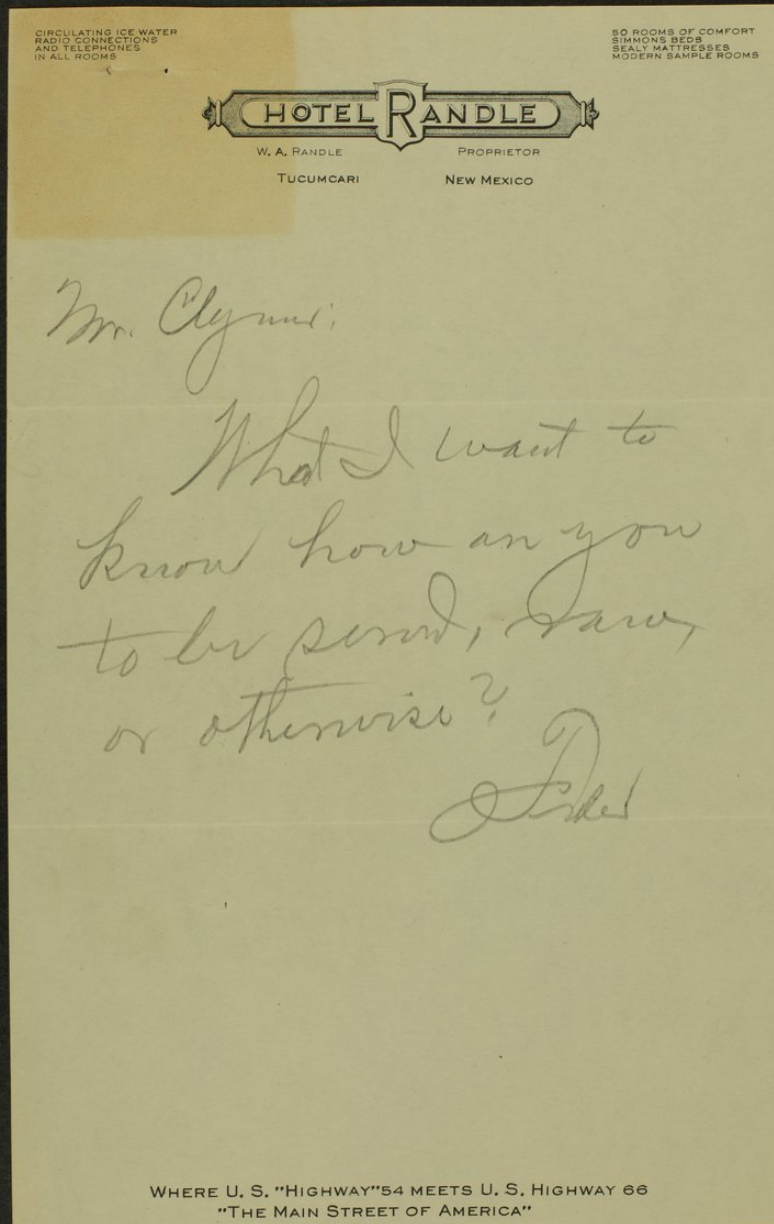 CIRCULATING ICE WATER
RADIO CONNECTIONS
AND TELEPHONES
IN ALL ROOMS
50 ROOMS OF COMFORT
SIMMONS BEDS
SEALY MATTRESSES
MODERN SAMPLE ROOMS
HOTEL RANDLE
W. A. RANDLE PROPRIETOR
TUCUMCARI NEW MEXICO
Mr. Clymer:
What I want to
know how are you
to be served, raw,
or otherwise?
WHERE U. S. "HIGHWAY" 54 MEETS U. S. HIGHWAY 66
"THE MAIN STREET OF AMERICA"